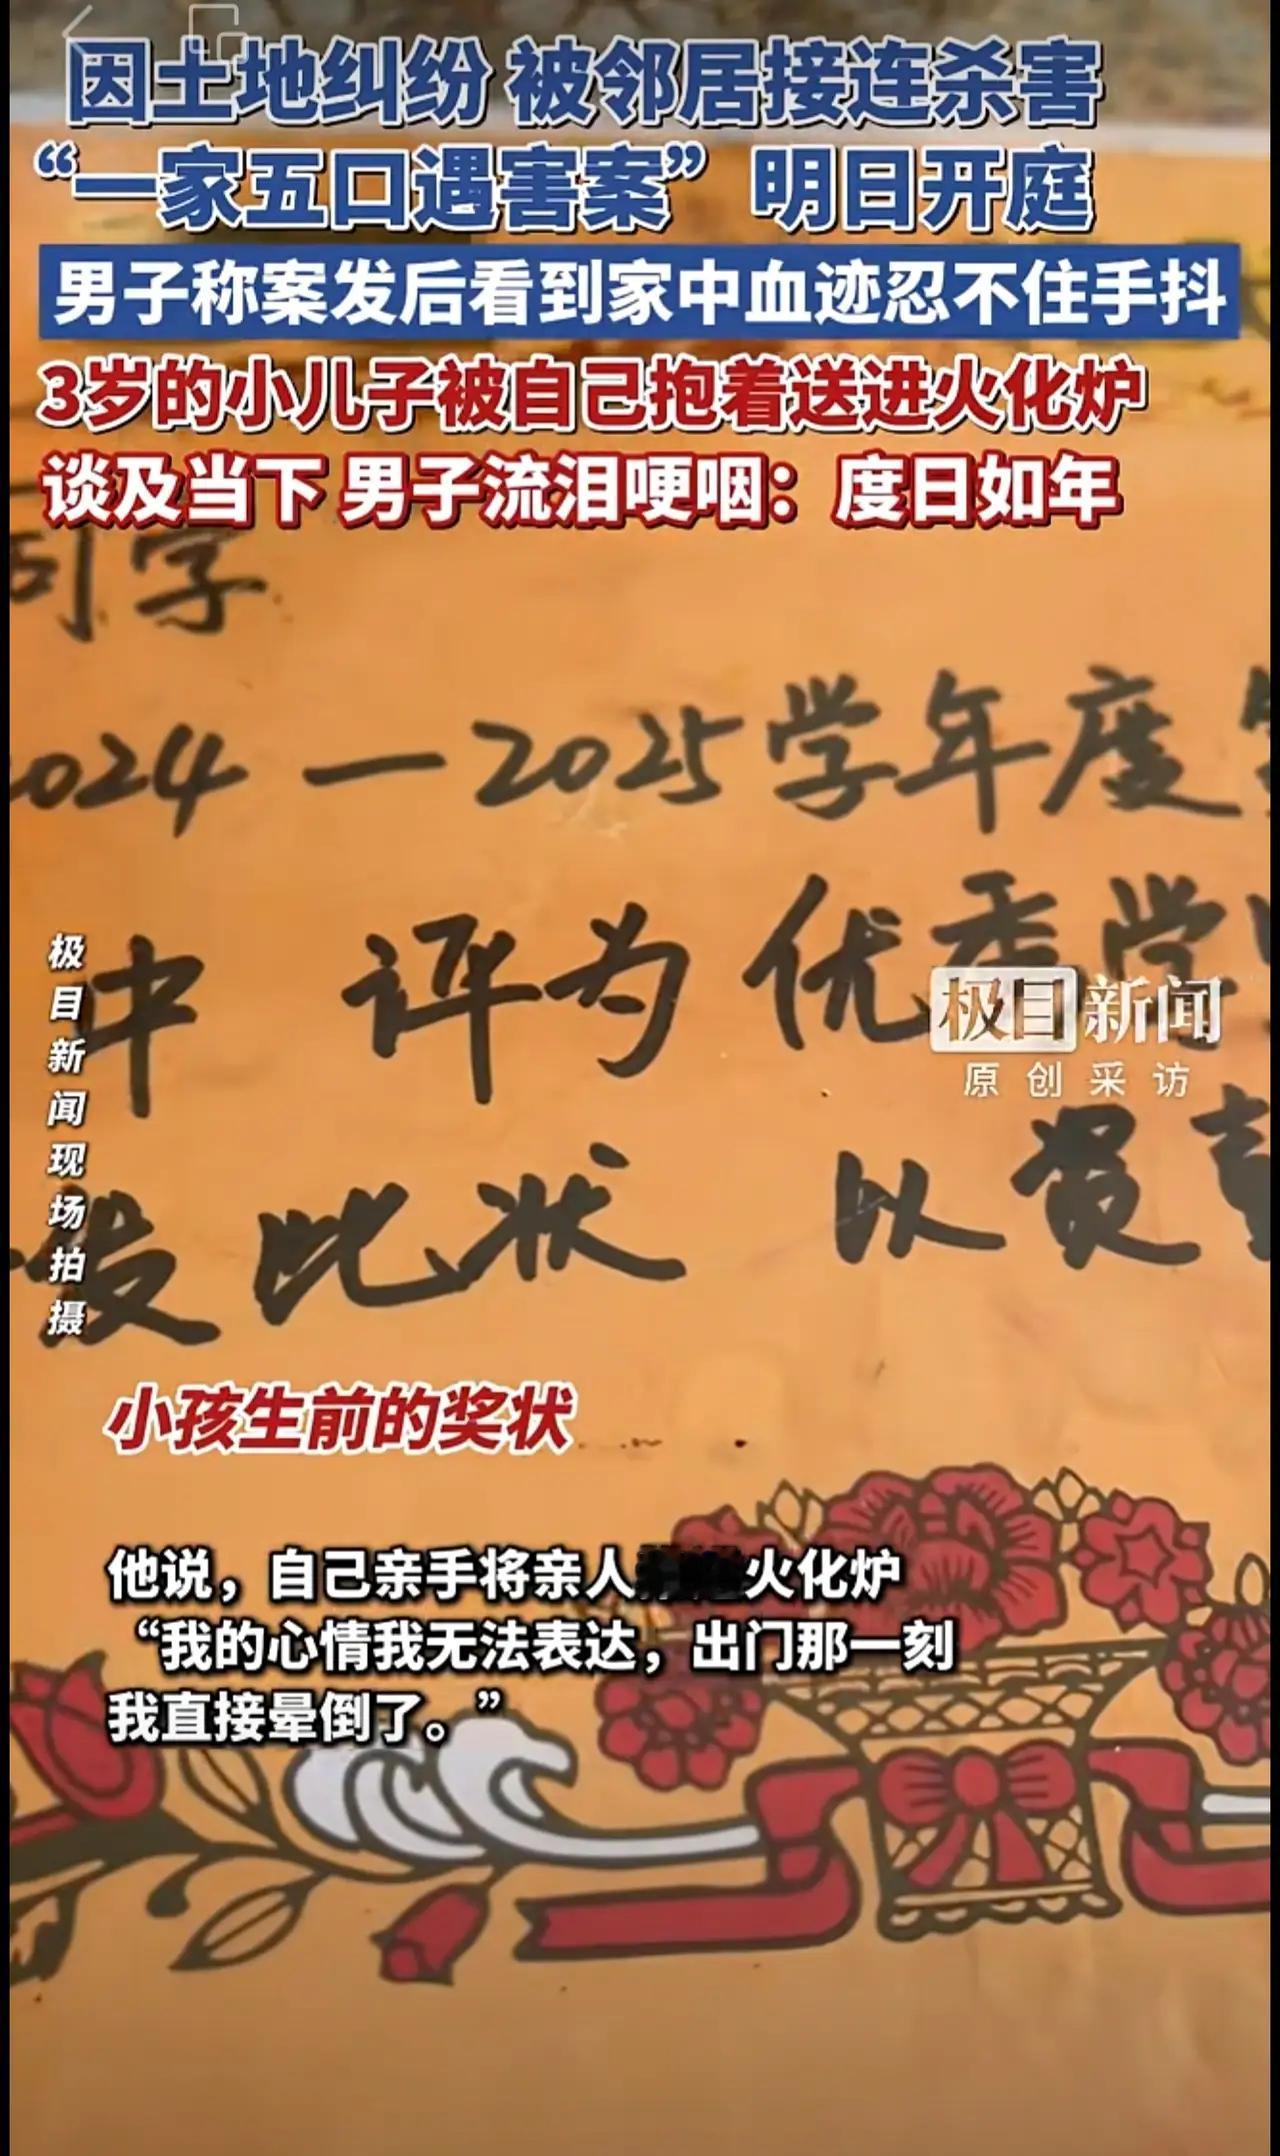 因土地纠纷 被邻居接连杀害
“一家五口遇害案” 明日开庭
男子称案发后看到家中血迹忍不住手抖
3岁的小儿子被自己抱着送进火化炉
谈及当下 男子流泪哽咽：度日如年
同学
2024—2025学年度
中 评为 优秀学
极目新闻
原创采访
极目新闻现场拍摄
发此状 以资
小孩生前的奖状
他说，自己亲手将亲人 火化炉
“我的心情我无法表达，出门那一刻
我直接晕倒了。”